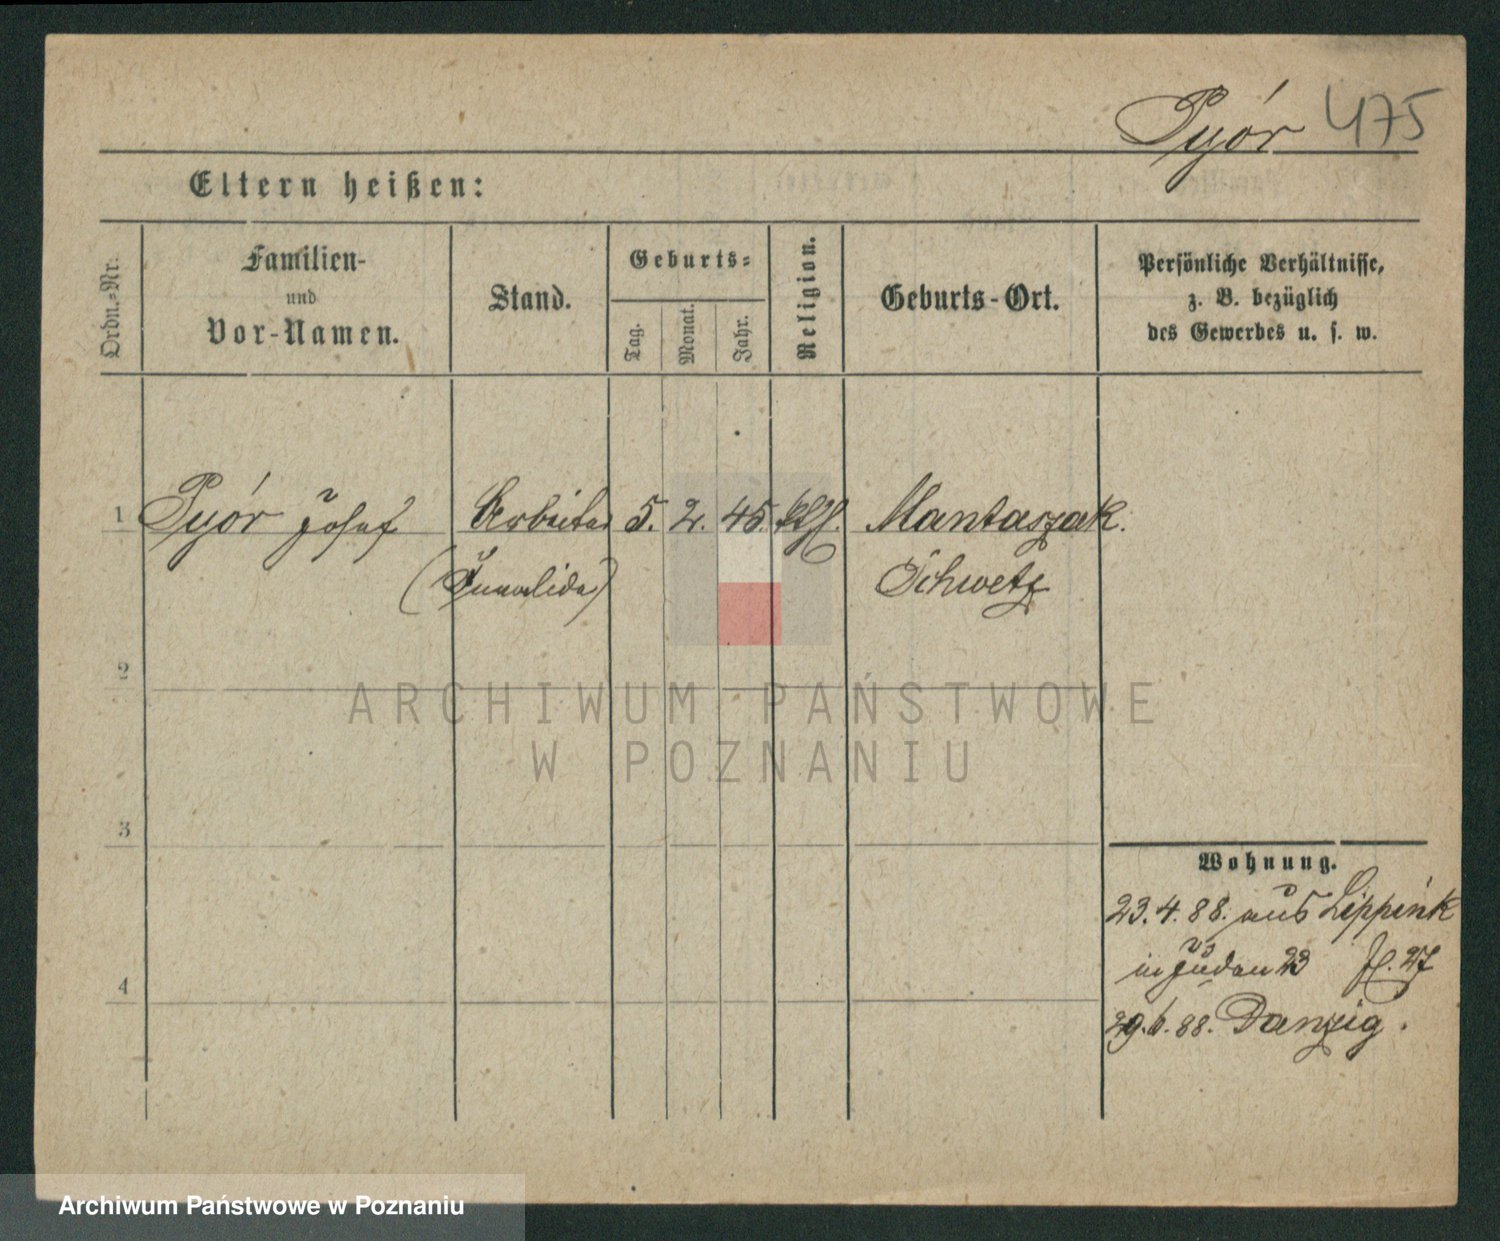 Pyór 475
Eltern heißen:
Ordn.=Nr.
Familien-
und
Vor-Namen.
Stand.
Geburts=
Tag.
Monat.
Jahr.
Religion.
Geburts-Ort.
Persönliche Verhältnisse,
z. B. bezüglich
des Gewerbes u. s. w.
1 Pyór Josef Arbeiter 5. 2. 45. kth. Mantaszak.
(Invalide) Schwetz
2
ARCHIWUM PAŃSTWOWE
W POZNANIU
3
Wohnung.
23. 4. 88. aus Lippink
in Juden 23 fl. 27
4
29. 6. 88. Danzig.
Archiwum Państwowe w Poznaniu